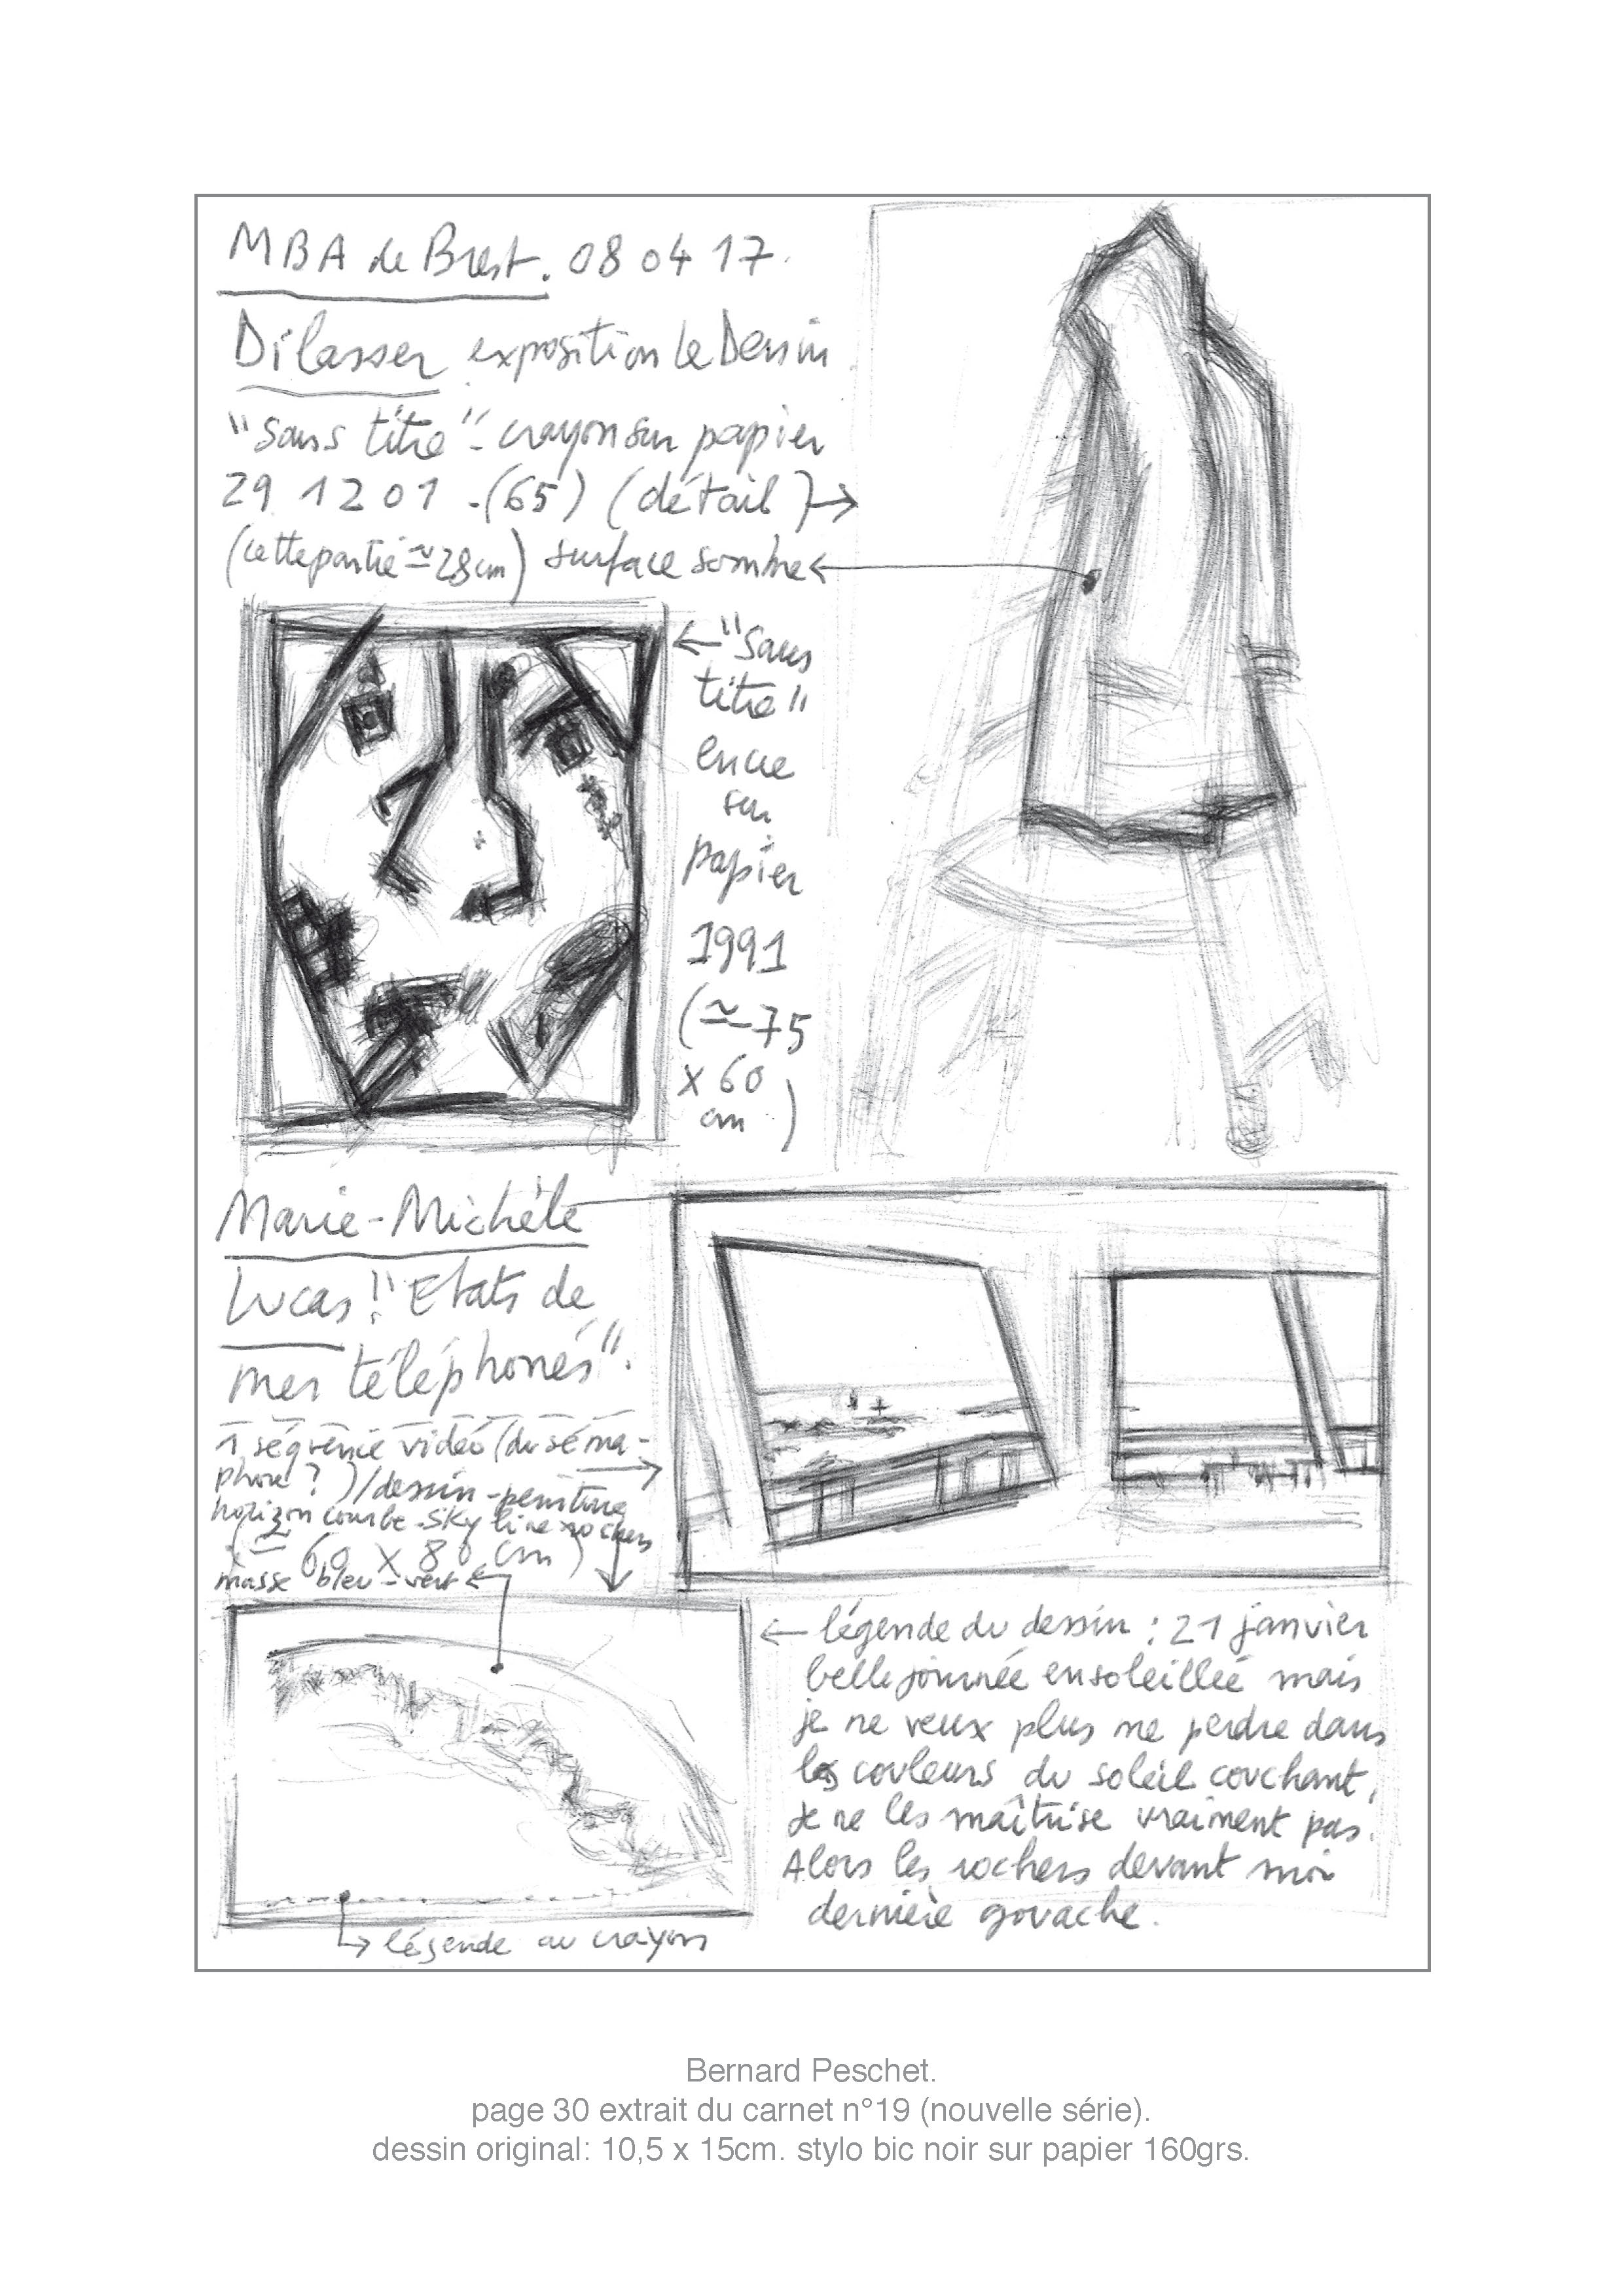 MBA de Brest. 08 04 17.
Dilasser exposition le Dessin
"sans titre" - crayon sur papier
29 12 01 - (65) (détail) →
(cette partie ≃ 28 cm) surface sombre ←
← "Sans
titre"
encre
sur
papier
1991
(≃ 75
x 60
cm)
Marie-Michèle
Lucas "Etats de
mes téléphones".
1 séquence vidéo (du séma-
phore ?) / dessin-peinture →
horizon courbe - sky line rochers
(≃ 60 x 80 cm) ↓
masse bleu-vert ←
← légende du dessin : 21 janvier
belle journée ensoleillée mais
je ne veux plus me perdre dans
les couleurs du soleil couchant,
je ne les maîtrise vraiment pas.
Alors les rochers devant moi
dernière gouache.
↳ légende au crayon
Bernard Peschet.
page 30 extrait du carnet n°19 (nouvelle série).
dessin original: 10,5 x 15cm. stylo bic noir sur papier 160grs.